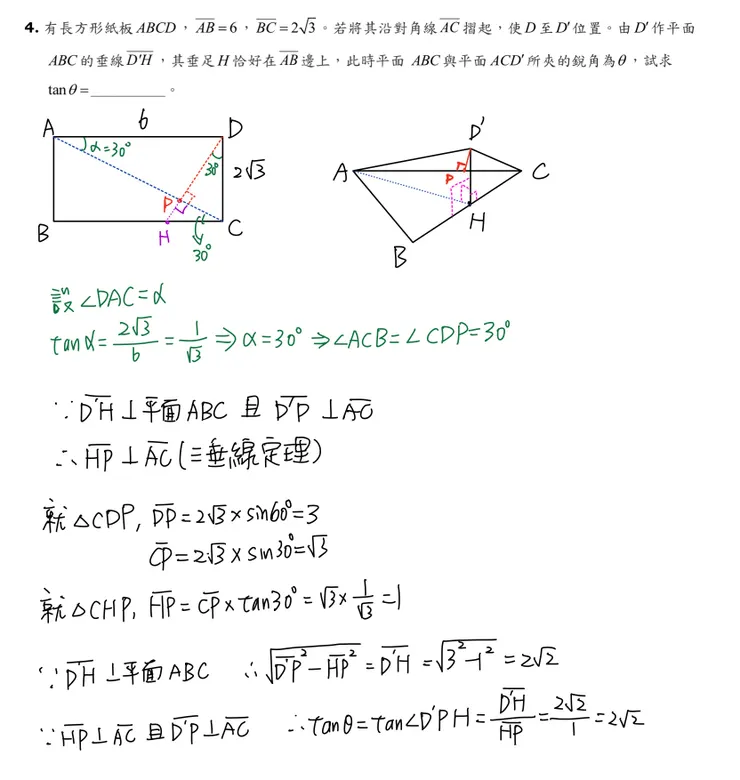 4. 有長方形紙板 ABCD，AB̅=6，BC̅=2√3。若將其沿對角線 AC̅ 摺起，使 D 至 D′ 位置。由 D′ 作平面
ABC 的垂線 D′H̅，其垂足 H 恰好在 AB̅ 邊上，此時平面 ABC 與平面 ACD′ 所夾的銳角為 θ，試求
tanθ=__________。
A 6 D
α=30° 30° 2√3
P
B H C
30°
D′
A P C
H
B
設∠DAC=α
tanα=2√3/6=1/√3⇒α=30°⇒∠ACB=∠CDP=30°
∵D′H̅⊥平面ABC 且 D′P̅⊥AC̅
∴HP̅⊥AC̅(三垂線定理)
就△CDP, DP̅=2√3×sin60°=3
CP̅=2√3×sin30°=√3
就△CHP, HP̅=CP̅×tan30°=√3×1/√3=1
∵D′H̅⊥平面ABC ∴√(D′P̅²-HP̅²)=D′H̅=√(3²-1²)=2√2
∵HP̅⊥AC̅ 且 D′P̅⊥AC̅ ∴tanθ=tan∠D′PH=D′H̅/HP̅=2√2/1=2√2